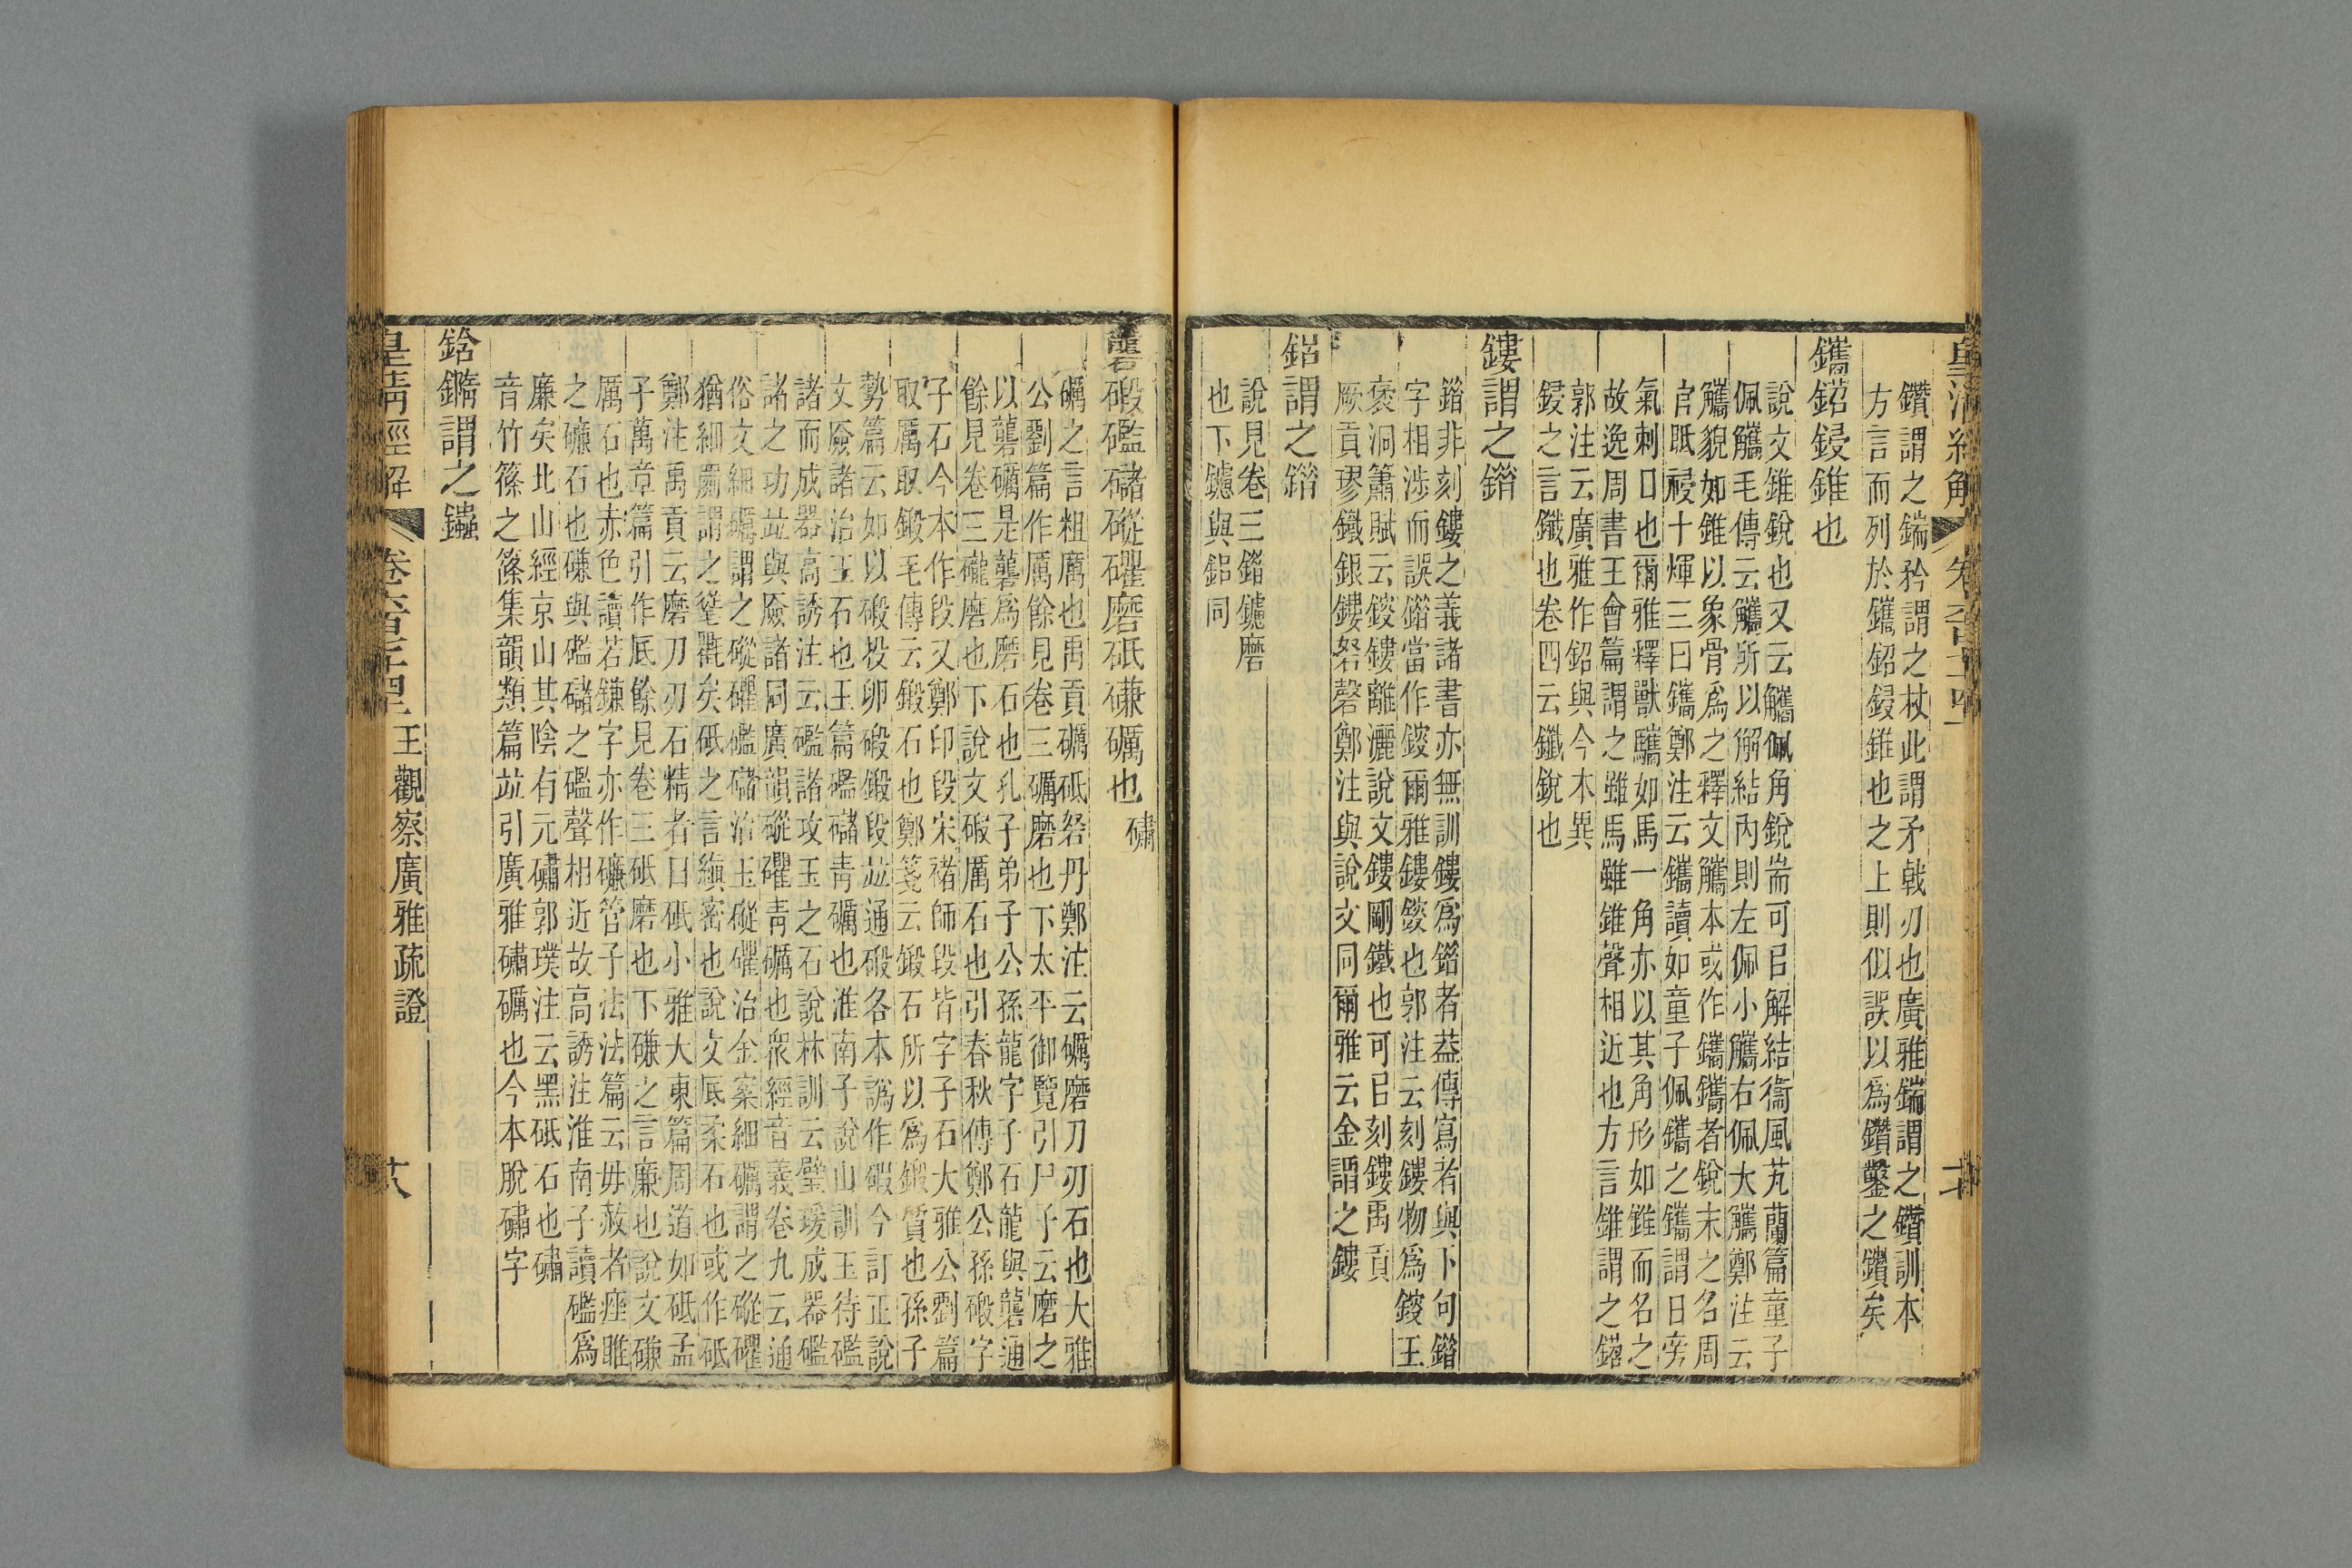 皇清經解
鑽謂之鍴矜謂之杖此謂矛戟刃也廣雅鍴謂之鑽訓本
方言而列於鑴鉊鋟錐也之上則似誤以爲鑽鑿之鑽矣
鑴鉊鋟錐也
說文錐銳也又云觿佩角銳耑可㠯解結衞風芄蘭篇童子
佩觿毛傳云觿所以解結內則左佩小觿右佩大觿鄭注云
觿貌如錐以象骨爲之釋文觿本或作鑴鑴者銳末之名周
官眡祲十煇三曰鑴鄭注云鑴讀如童子佩鑴之鑴謂日旁
氣刺日也爾雅釋獸驨如馬一角亦以其角形如錐而名之
故逸周書王會篇謂之雖馬雖錐聲相近也方言錐謂之鍣
郭注云廣雅作鉊與今本異
鋟之言鑯也卷四云鑯銳也
鏤謂之錯
錯非刻鏤之義諸書亦無訓鏤爲錯者葢傳寫者與下句錯
字相涉而誤錯當作錽爾雅鏤錽也郭注云刻鏤物爲錽王
褒洞簫賦云錽鏤離灑說文鏤剛鐵也可㠯刻鏤禹貢
厥貢璆鐵銀鏤砮磬鄭注與說文同爾雅云金謂之鏤
鋁謂之錯
說見卷三錯鑢磨
也下鑢與鋁同
礱碫䃴䃴磫礭磨砥磏礪也 礵
礪之言粗厲也禹貢礪砥砮丹鄭注云礪磨刀刃石也大雅
公劉篇作厲餘見卷三礪磨也下太平御覽引尸子云磨之
以礱礪是礱爲磨石也孔子弟子公孫龍字子石龍與礱通
餘見卷三礲磨也下說文碫厲石也引春秋傳鄭公孫碫字
子石今本作段又鄭印段宋褚師段皆字子石大雅公劉篇
取厲取鍛毛傳云鍛石也鄭箋云鍛石所以爲鍛質也孫子
勢篇云如以碫投卵碫鍛段竝通碫各本譌作碬今訂正說
文厱諸治玉石也玉篇䃴䃴青礪也淮南子說山訓玉待䃴
諸而成器高誘注云䃴諸攻玉之石說林訓云璧瑗成器䃴
諸之功竝與厱諸同廣韻磫礭青礪也眾經音義卷九云通
俗文細礪謂之磫礭䃴䃴治玉磫礭治金案細礪謂之磫礭
猶細罽謂之㲝㲘矣砥之言縝密也說文厎柔石也或作砥
鄭注禹貢云磨刀刃石精者曰砥小雅大東篇周道如砥孟
子萬章篇引作厎餘見卷三砥磨也下磏之言廉也說文磏
厲石也赤色讀若鎌字亦作礛管子法法篇云毋赦者痤雎
之礛石也磏與䃴䃴之䃴聲相近故高誘注淮南子讀䃴爲
廉矣北山經京山其陰有元礵郭璞注云黑砥石也礵
音竹篠之篠集韻類篇竝引廣雅礵礪也今本脫礵字
鋡鏅謂之鏀
皇清經解 卷六百七十四 王觀察廣雅疏證 六